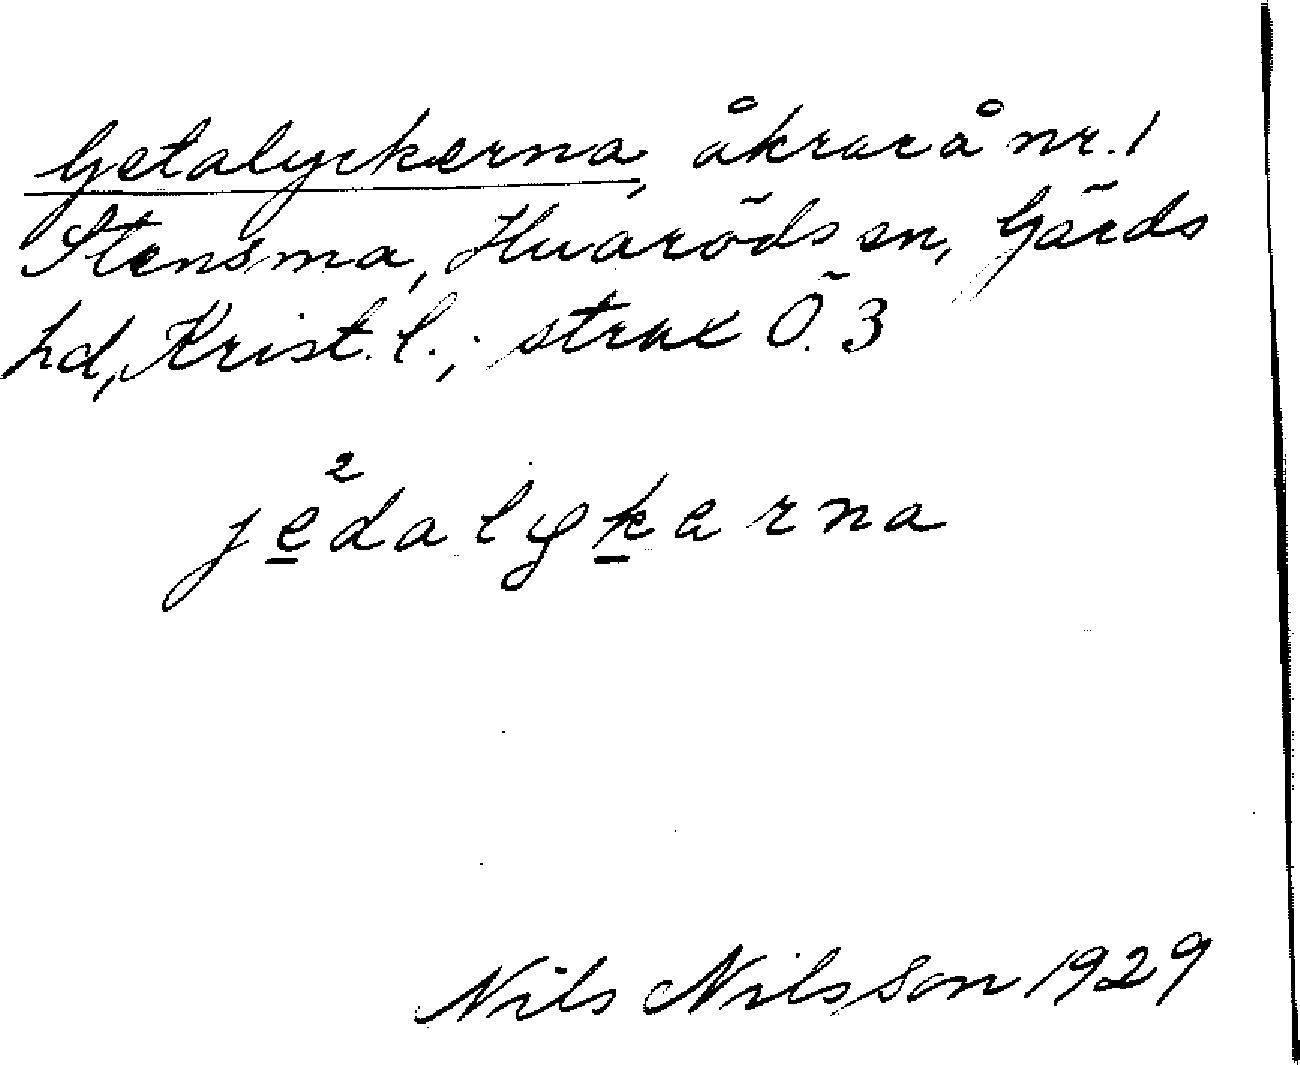 Getalyckerna, åkrar å nr. 1
Stensma, Huaröds sn, Gärds
hd, Krist. l.; strax Ö. 3
je̲²dalyk̲erna
Nils Nilsson 1929